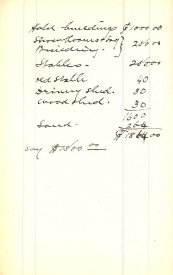 Hotel buildings $1000 00
Building. } 250 00
Stables - 250 00
old Stable 40
Drivery shed. 30
wood shed. 30
1600
Land. 264
$1864 00
say $1800 00